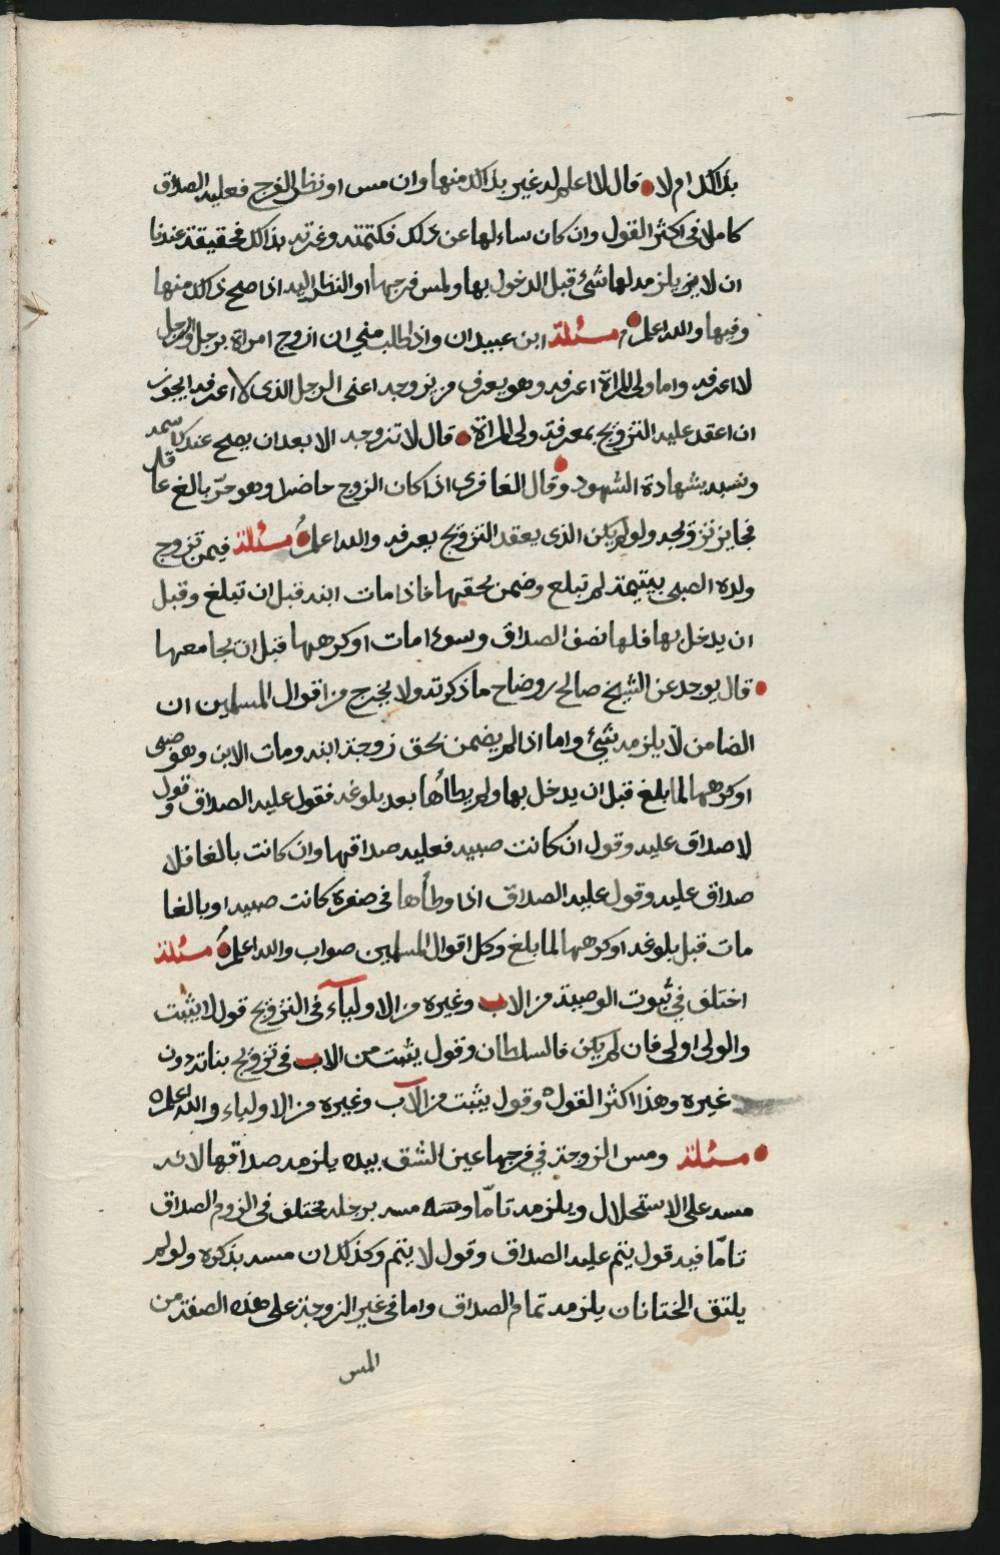 بذالك ام لا قال لا اعلم له غير بذالك منها وان مس او نظر الفرج فعليه الصداق
كاملا في اكثر القول وان كان ساءلها عن ذلك فكتمته وغرته بذالك فحقيقة عندنا
ان لا يلزمه لها شئ قبل الدخول بها ولمس فرجها او النظر اليه اذا صح ذالك منها
وفيها والله اعلم مسئلة ابن عبيدان واذا طلب مني ان ازوج امراة برجل والرجل
لا اعرفه واما ولي المراة اعرفه وهو يعرف من يزوجه اعني الرجل الذي لا اعرفه ايجوز
ان اعقد عليه التزويج بمعرفة ولي المراة قال لا تزوجه الا بعد ان يصح عندك اسمه
ونسبه بشهادة الشهود وقال الغافري اذا كان الزوج حاضرا وهو حرّ بالغ عاقل
فجايز تزويجه ولو لم يكن الذي يعقد التزويج يعرفه والله اعلم مسئلة فيمن تزوج
ولده الصبي بيتيمة لم تبلغ وضمن بحقها فاذا مات ابنه قبل ان تبلغ وقبل
ان يدخل بها فلها نصف الصداق وسواء مات او كرهها قبل ان يجامعها
قال يوجد عن الشيخ صالح وضاح ما ذكرته ولا يخرج من اقوال المسلمين ان
الضامن لا يلزمه شئ واما اذا لم يضمن بحق زوجة ابنه ومات الابن وهو صبي
او كرهها لما بلغ قبل ان يدخل بها ولم يطأها بعد بلوغه فقول عليه الصداق وقول
لا صداق عليه وقول ان كانت صبيه فعليه صداقها وان كانت بالغا فلا
صداق عليه وقول عليه الصداق اذا وطأها في صغره كانت صبيه او بالغا
مات قبل بلوغه او كرهها لما بلغ وكل اقوال المسلمين صواب والله اعلم مسئلة
اختلف في ثبوت الوصية من الاب وغيره من الاولياء في التزويج قول لا يثبت
والولي اولى فان لم يكن فالسلطان وقول يثبت من الاب في تزويج بناته دون
غيره وهذا اكثر القول وقول يثبت من الاب وغيره من الاولياء والله اعلم
مسئلة ومس الزوجة في فرجها عين الشق بيده يلزمه صداقها لانه
مسه على الاستحلال ويلزمه تامّا ومسه برجله مختلف في لزوم الصداق
تامّا فيه قول يتم عليه الصداق وقول لا يتم وكذلك ان مسه بذكره ولو لم
يلتق الختانان يلزمه تمام الصداق واما في غير الزوجة على هذه الصفة من
المس